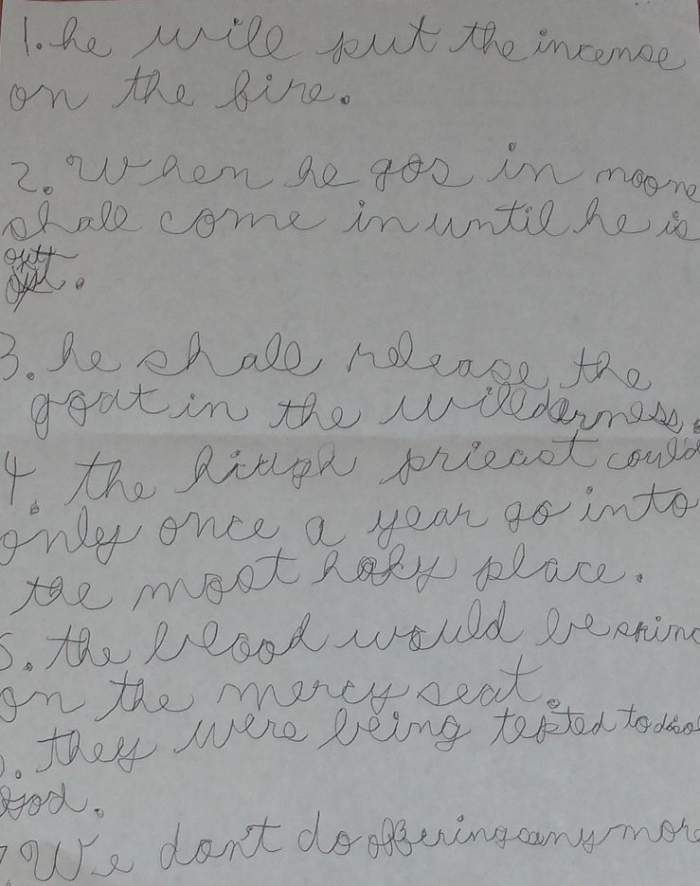 1. he will put the incense
on the fire.
2. When he gos in noone
shall come in until he is
out.
3. he shall release the
goat in the willderness.
4. the hiugh prieast could
only once a year go into
the most holy place.
5. the blood would be
on the mercy seat.
they were being to
God.
We don't do offerings any more